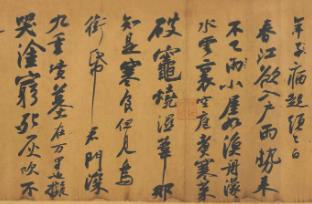 年子病起頭已白
春江欲入戶雨勢來
不已雨小屋如漁舟濛〻
水雲裏空庖煮寒菜
破竈燒濕葦那
知是寒食但見烏
銜帋君門深
九重墳墓在万里也擬
哭塗窮死灰吹不